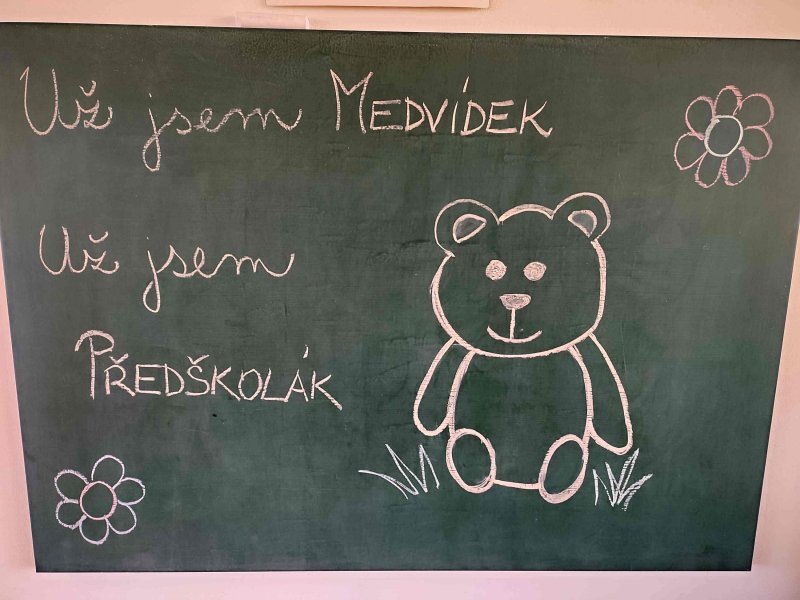 Už jsem MEDVÍDEK
Už jsem
PŘEDŠKOLÁK